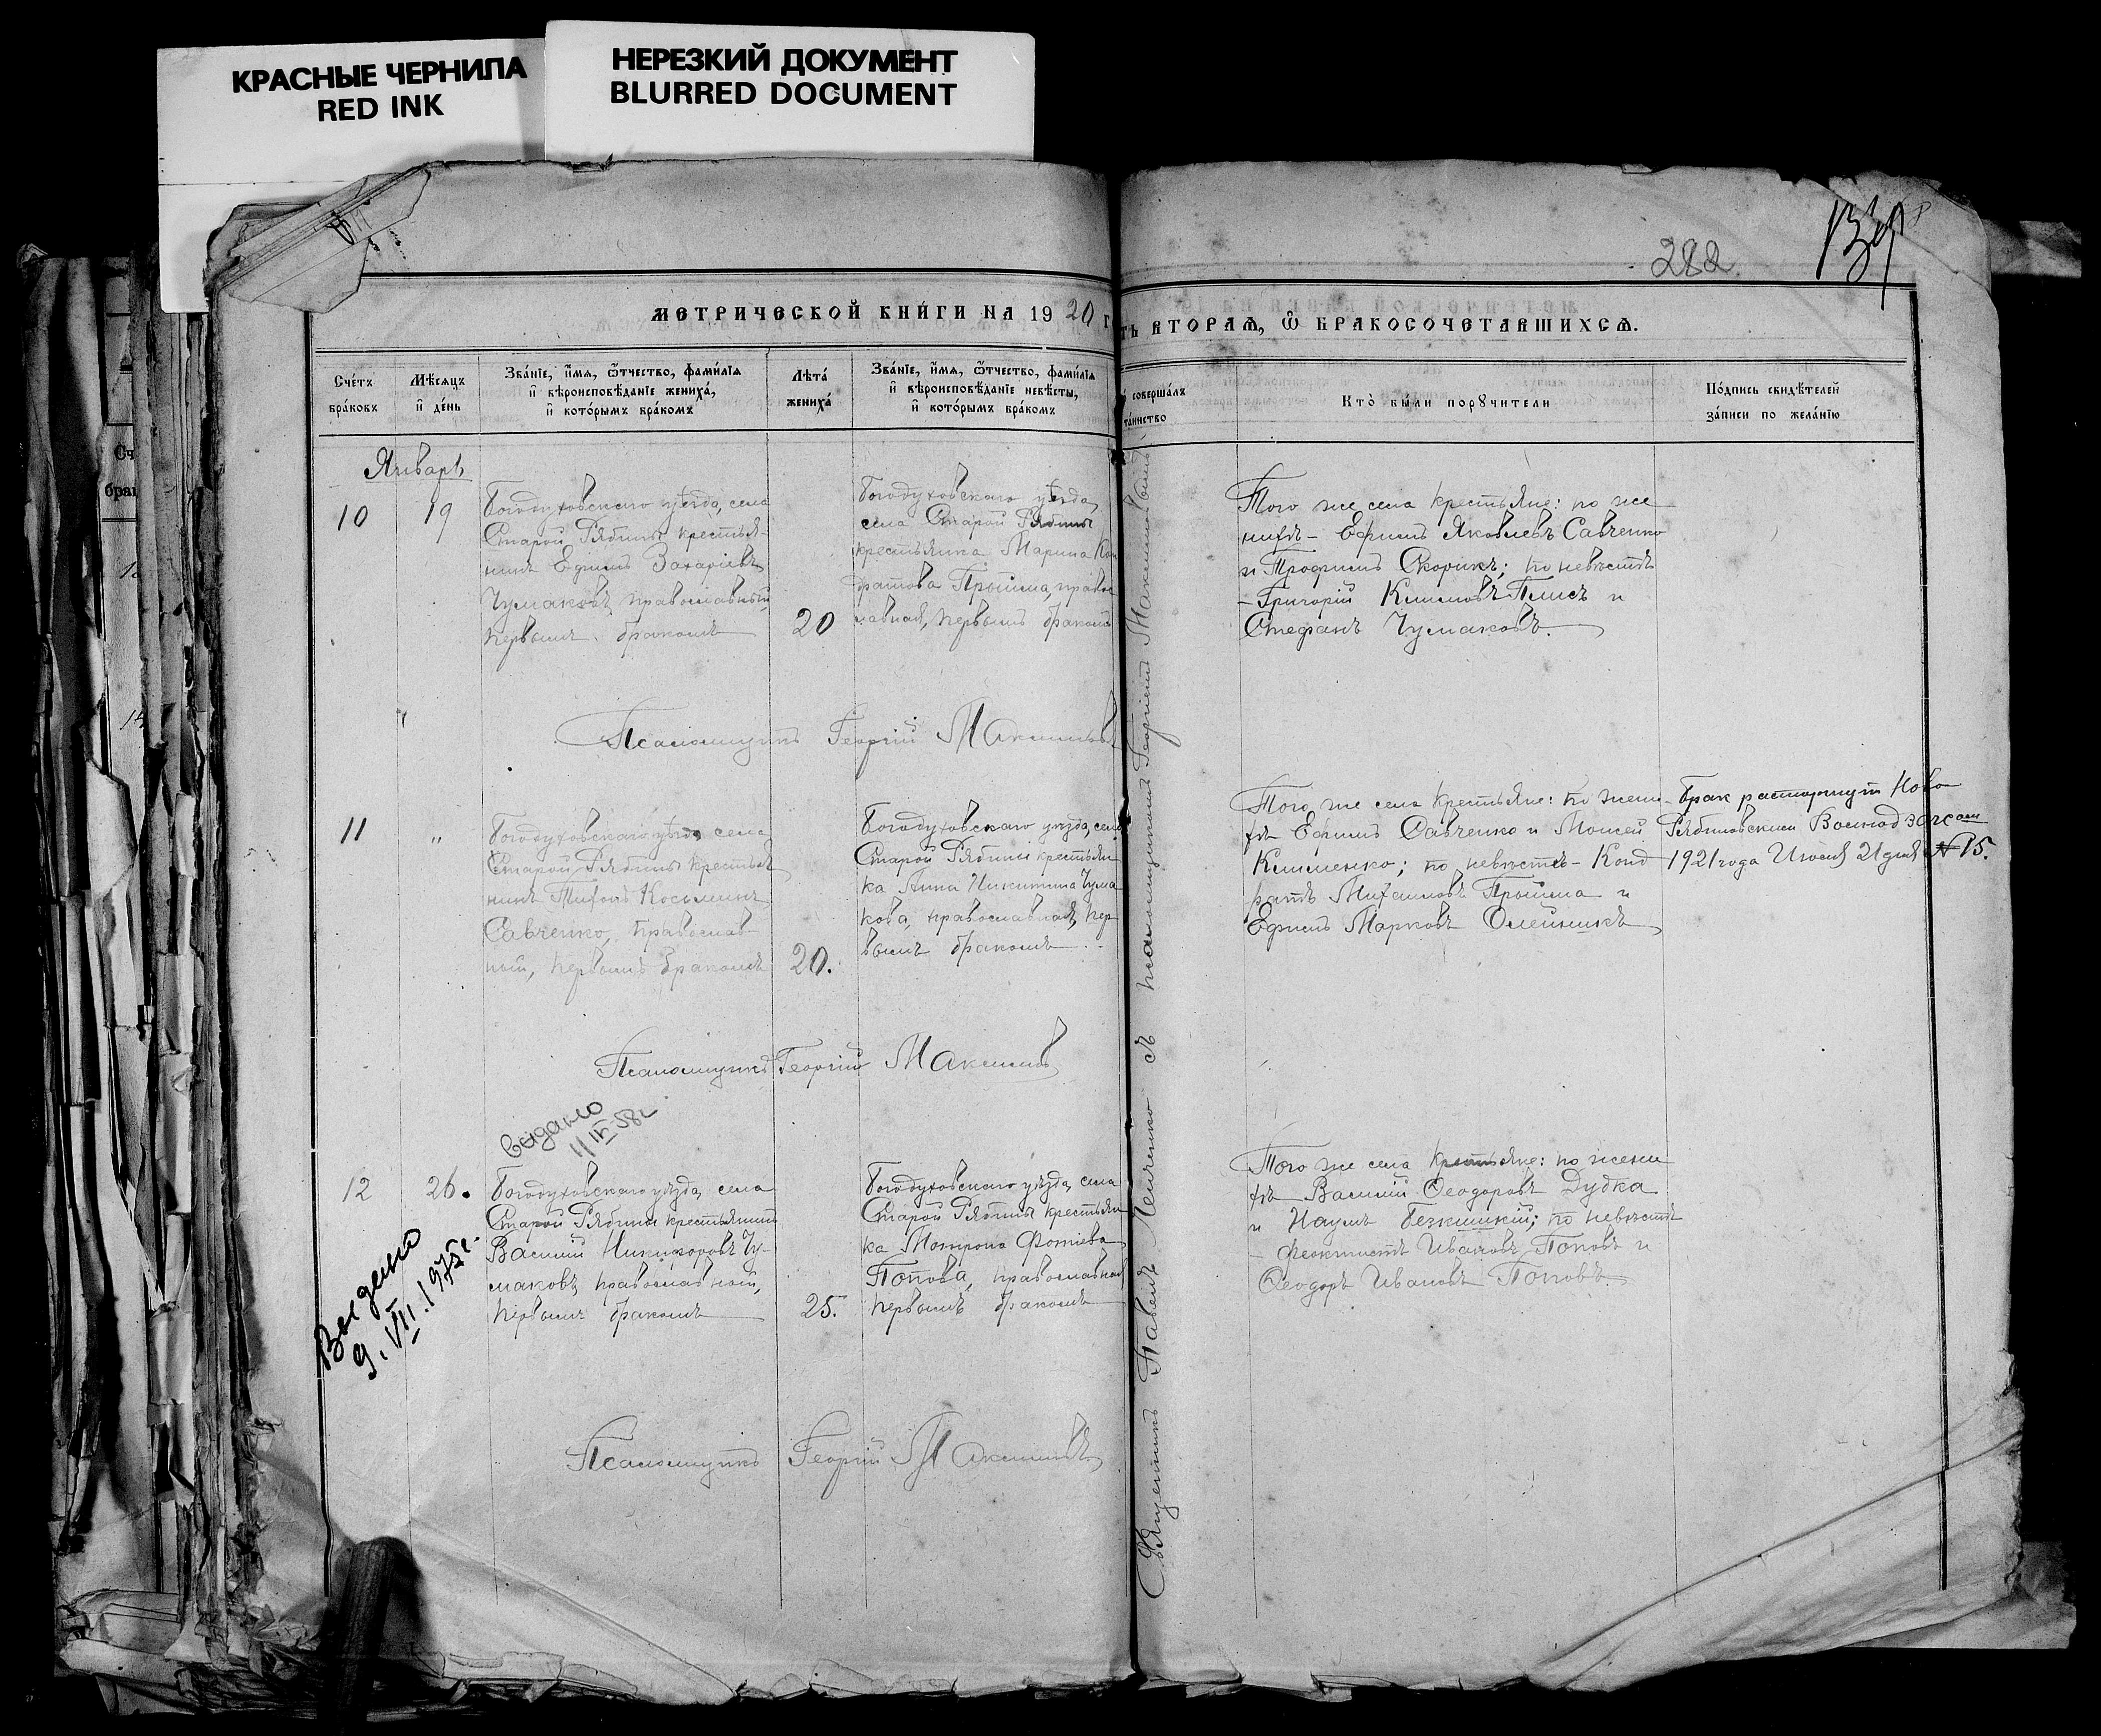 КРАСНЫЕ ЧЕРНИЛА
RED INK
НЕРЕЗКИЙ ДОКУМЕНТ
BLURRED DOCUMENT
282
МЕТРИЧЕСКОЙ КНИ́ГИ НА 1920 г
ТЬ ВТОРАѦ, Ѡ БРАКОСОЧЕТАВШИХСѦ.
Сче́тъ бра́ковъ
Мѣ́сѧцъ и҆ де́нь
Зва́нїе, и҆́мѧ, ѻ҆́тчество, фами́лїѧ и҆ вѣроисповѣ́данїе жениха́, и҆ кото́рымъ бра́комъ
Лѣта́ жениха́
Зва́нїе, и҆́мѧ, ѻ҆́тчество, фами́лїѧ и҆ вѣроисповѣ́данїе невѣ́сты, и҆ кото́рымъ бра́комъ
соверша́лъ
та́инство
Кто̀ бы́ли порꙋчи́тели
По́дпись свидѣ́телей за́писи по жела́нїю
Январь
10
19
Богодуховскаго уѣзда, села
Старой Рябины крестья-
нинъ Ефимъ Захаріевъ
Чумаковъ, православный,
первымъ бракомъ
20
Богодуховскаго уѣзда,
села Старой Рябины
крестьянка Марина Кон
дратова Прыйма, право
славная, первымъ бракомъ
Того же села крестьяне: по же
нихѣ - Ефимъ Яковлевъ Савченко
и Трофимъ Скорикъ; по невѣстѣ
- Григорій Климовъ Плисъ и
Стефанъ Чумаковъ.
Псаломщикъ Георгій Максимовъ
11
"
Богодуховскаго уѣзда, села
Старой Рябины крестья
нинъ Тихонъ Косьминъ
Савченко, православ
ный, первымъ бракомъ
20.
Богодуховскаго уѣзда, села
Старой Рябины крестьян
ка Анна Никитина Чума
кова, православная, пер
вымъ бракомъ
Того же села крестьяне: по жени
хѣ Ефимъ Савченко и Моисей
Клименко; по невѣстѣ - Конд
ратъ Михаиловъ Прыйма и
Ефимъ Марковъ Олейникъ
брак расторгнут Ново
Рябиновским Волподзагсом
1921 года Июня 21 дня № 15.
Псаломщикъ Георгій Максимовъ
выдано
11 IV 58 г.
12
26.
Богодуховскаго уѣзда, села
Старой Рябины крестьянинъ
Василій Никифоровъ Чу-
маковъ, православный,
первымъ бракомъ
25.
Богодуховскаго уѣзда, села
Старой Рябины крестьян
ка Мотрона Фотіева
Попова, православная
первымъ бракомъ
Того же села крестьяне: по жени
хѣ Василій Ѳеодоровъ Дудка
и Наумъ Безкишкій; по невѣстѣ
- Феоктистъ Ивановъ Поповъ и
Ѳеодоръ Ивановъ Поповъ
Выдано
9. VII. 1975 г.
Псаломщикъ Георгій Максимовъ
Священникъ Павелъ съ псаломщикомъ Георгіемъ Максимовымъ